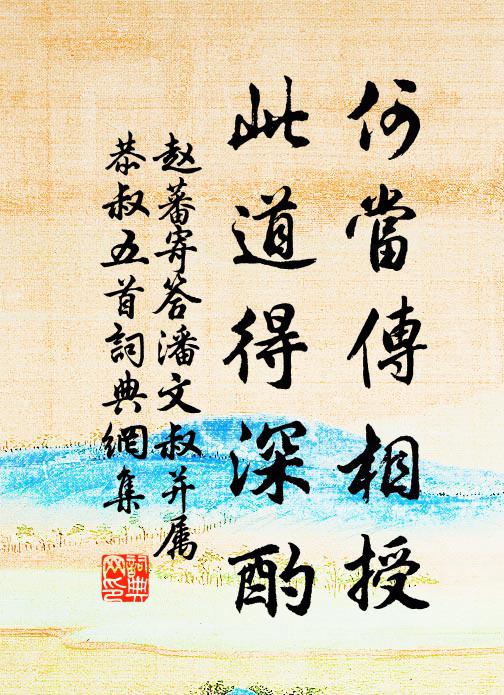 何當傳相授
此道得深酌
赵蕃寄答潘文叔并属
恭叔五首詞典網集
詞典
网印